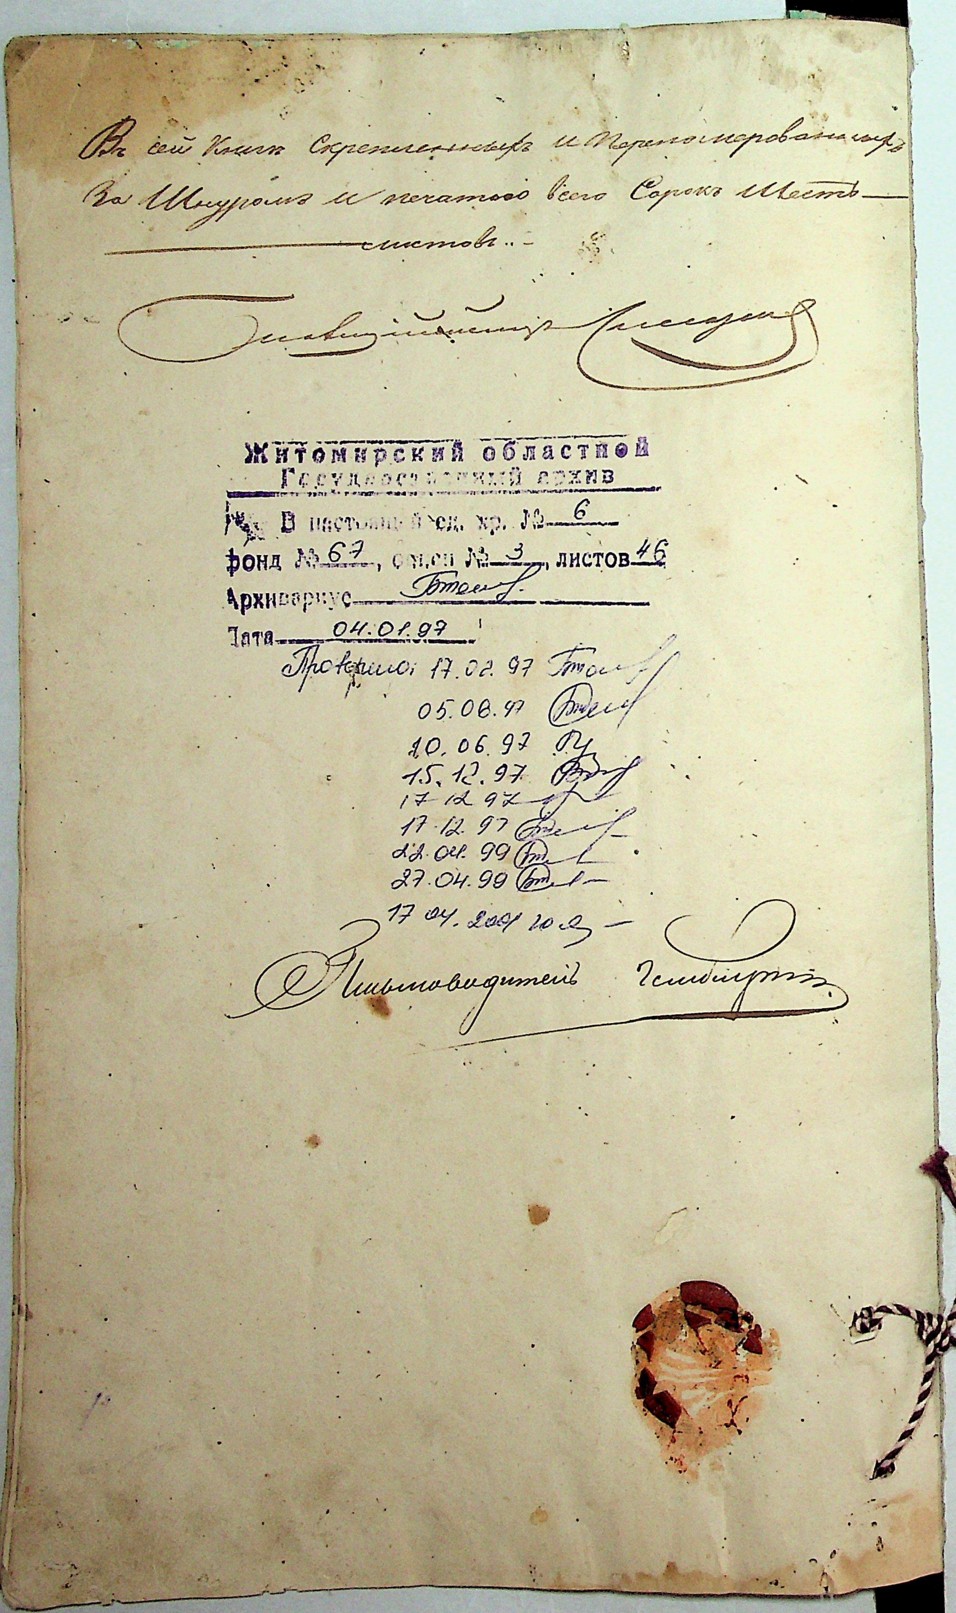 Въ сей Книгѣ Скрепленныхъ и Перенумерованныхъ
За Шнуромъ и печатью всего Сорокъ Шесть
листовъ..
Житомирский областной
Государственный архив
В настоящей ед. хр. № 6
фонд № 67, описи № 3, листов 46
Архивариус
Дата 04.01.97
Проверено: 17.02.97
05.08.97
10.06.97
15.12.97
17 12 97
17.12.97
22.04.99
27.04.99
17 04. 2001
Письмоводитель